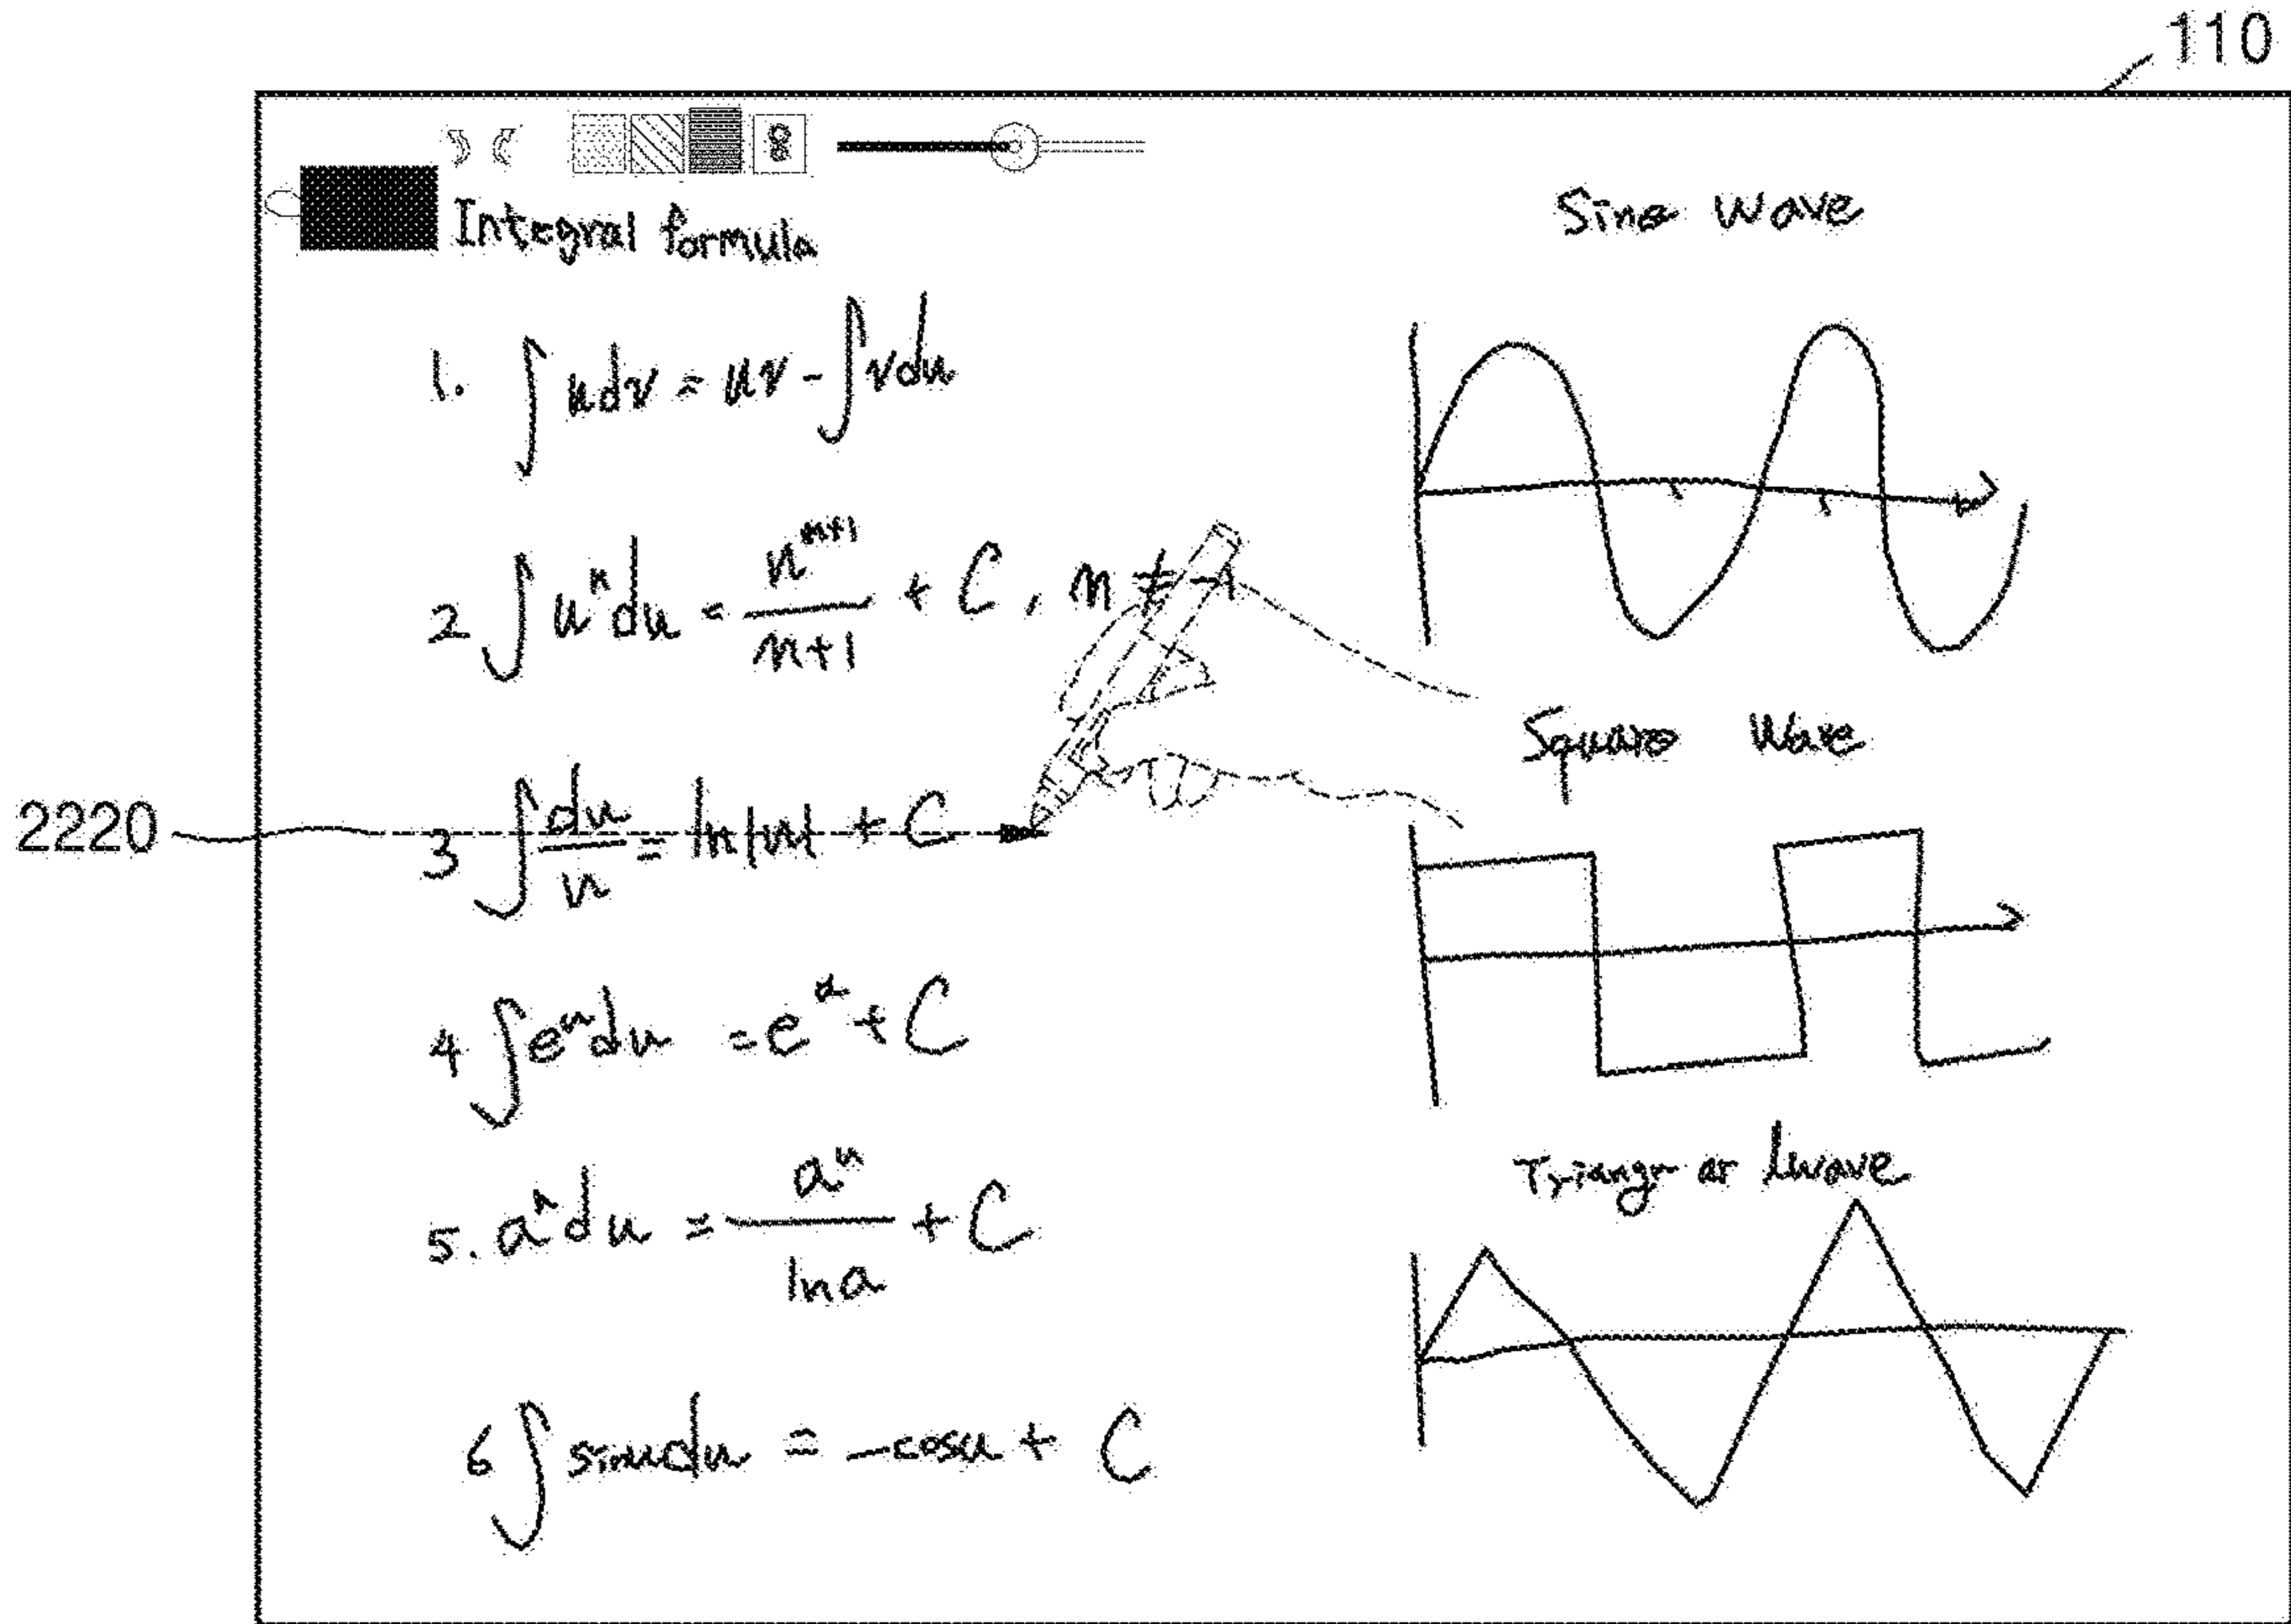 110
Integral formula
1. ∫udv = uv - ∫vdu
2 ∫uⁿdu = uⁿ⁺¹/n+1 + C, n ≠ -1
2220
3 ∫du/u = ln|u| + C
4 ∫eᵘdu = eᵘ + C
5. aⁿdu = aᵘ/lna + C
6 ∫sinudu = -cosu + C
Sine Wave
Square Wave
wave